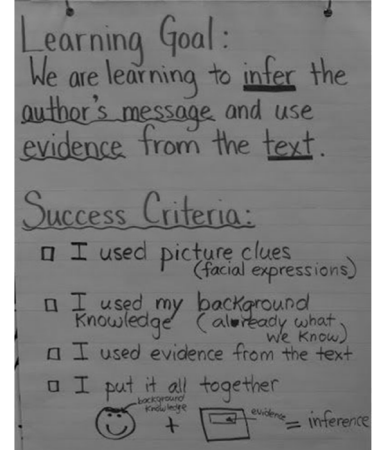 Learning Goal:
We are learning to infer the
author's message and use
evidence from the text.
Success Criteria:
I used picture clues
(facial expressions)
I used my background
knowledge (already what
we know)
I used evidence from the text
I put it all together
background
knowledge
+ evidence = inference